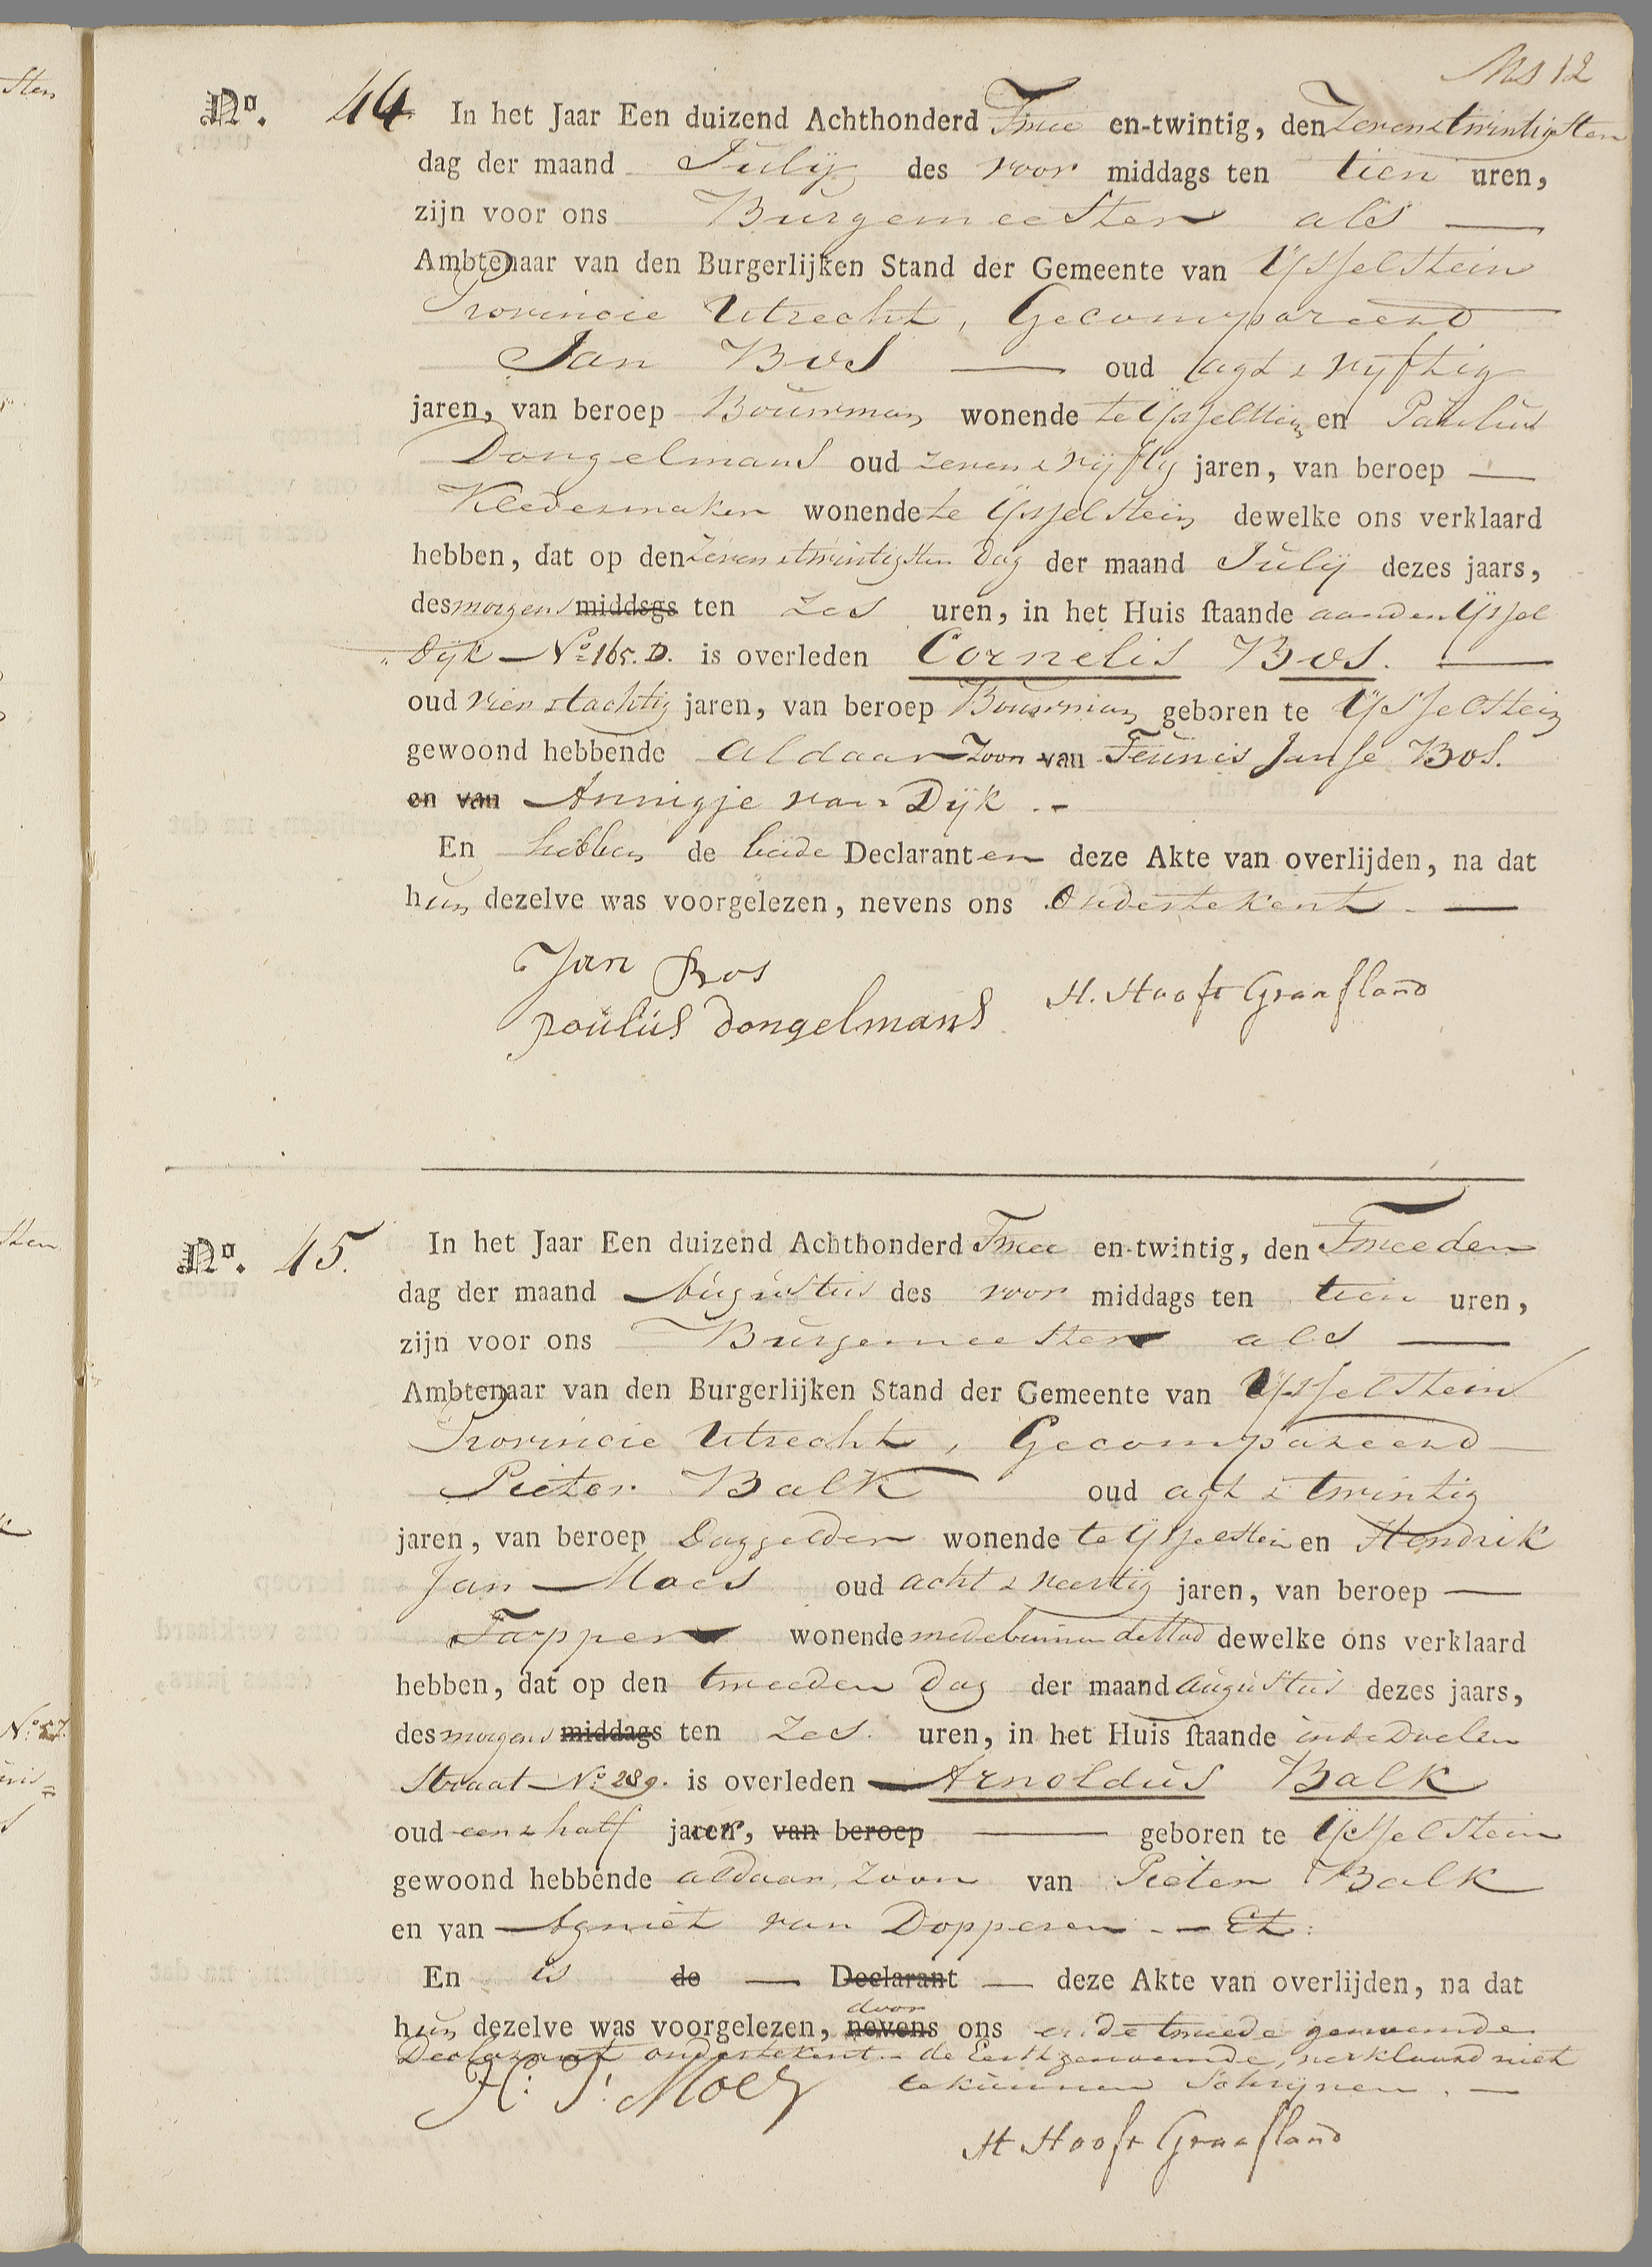 12
No. 44. In het Jaar Een duizend Achthonderd Twee en-twintig, den Zeven & twintigsten
dag der maand Julij des voor middags ten tien uren,
zijn voor ons Burgemeester als —
Ambtenaar van den Burgerlijken Stand der Gemeente van IJsselstein
Provincie Utrecht, Gecompareerd
Jan Bos — oud agt & vyftig
jaren, van beroep Bouwman wonende te IJsselstein en Paulus
Dongelmans oud zeven & vijftig jaren, van beroep —
Kledermaker wonende te IJsselstein dewelke ons verklaard
hebben, dat op den Zeven & twintigsten Dag der maand Julij dezes jaars,
des morgens middsgs ten zes uren, in het Huis staande aan den IJssel
Dijk — No. 165. D. is overleden Cornelis Bos. —
oud vier & tachtig jaren, van beroep Bouwman geboren te IJsselstein
gewoond hebbende aldaar Zoon van Teunis Janse Bos.
en van Annigje van Dijk . –
En hebben de beide Declaranten deze Akte van overlijden, na dat
hun dezelve was voorgelezen, nevens ons Ondertekent. —
Jan Bos
H. Hooft Graafland
poulus dongelmans
No. 45. In het Jaar Een duizend Achthonderd Twee en-twintig, den Tweeden
dag der maand Augustus des voor middags ten tien uren,
zijn voor ons Burgemeester als —
Ambtenaar van den Burgerlijken Stand der Gemeente van IJsselstein
Provincie Utrecht, Gecompareerd
Pieter Balk oud agt & twintig
jaren, van beroep Daggelder wonende te IJsselstein en Hendrik
Jan Moes oud acht & veertig jaren, van beroep —
Tapper wonende mede binnen de Stad dewelke ons verklaard
hebben, dat op den tweeden Dag der maand Augustus dezes jaars,
des morgens middags ten zes. uren, in het Huis staande in de Doelen
Straat — No. 289. is overleden Arnoldus Balk
oud een & half jaren, van beroep — geboren te IJsselstein
gewoond hebbende aldaar, zoon van Pieter Balk
en van Agniet van Dopperen. — Et:
En is de — Declarant — deze Akte van overlijden, na dat
door
hun dezelve was voorgelezen, nevens ons en de tweede genoemde
Declarant ondertekent. – de Eerstgenoemde, verklaard niet
te kunnen Schrijven. —
H: J: Moes
H Hooft Graafland
Sten
sten